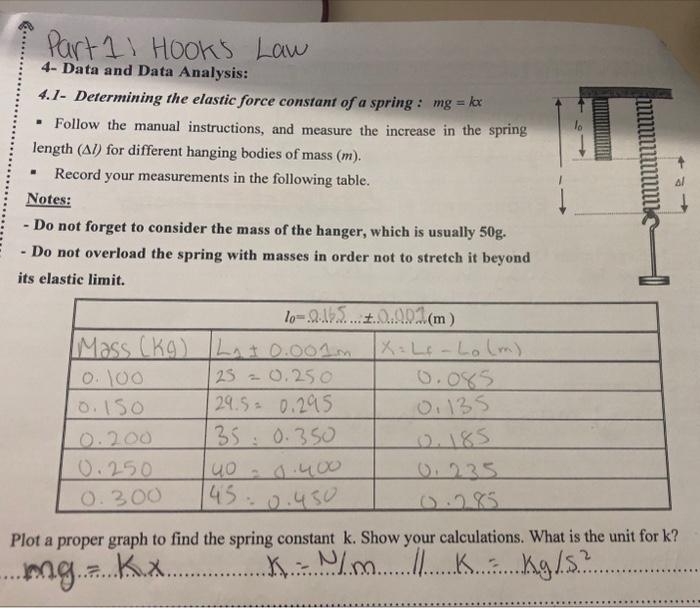 Part 1: HOOKS Law
4- Data and Data Analysis:
4.1- Determining the elastic force constant of a spring : mg = kx
▪ Follow the manual instructions, and measure the increase in the spring
length (Δl) for different hanging bodies of mass (m).
▪ Record your measurements in the following table.
Notes:
- Do not forget to consider the mass of the hanger, which is usually 50g.
- Do not overload the spring with masses in order not to stretch it beyond
its elastic limit.
l₀
l
Δl
l₀= 0.165 ...±.0.001..(m )
Mass (Kg) L₁ ± 0.001m X = Lf - Lo (m)
0.100 25 = 0.250 0.085
0.150 29.5 = 0.295 0.135
0.200 35 = 0.350 0.185
0.250 40 = 0.400 0.235
0.300 45 = 0.450 0.285
Plot a proper graph to find the spring constant k. Show your calculations. What is the unit for k?
mg = Kx K = N/m // K = Kg/s²